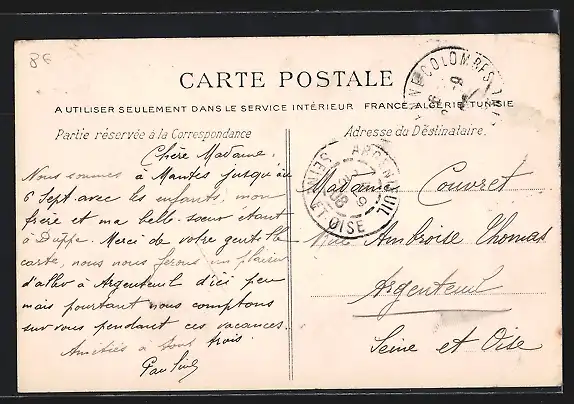 86
CARTE POSTALE
A UTILISER SEULEMENT DANS LE SERVICE INTÉRIEUR FRANCE, ALGÉRIE, TUNISIE
Partie réservée à la Correspondance
Adresse du Déstinataire.
COLOMBES
ARGENTEUIL
SEINE ET OISE
Chère Madame.
Nous sommes à Mantes jusqu'au
6 Sept. avec les enfants, mon
frère et ma belle-sœur étant
à Dieppe. Merci de votre gentille
carte, nous nous ferons un plaisir
d'aller à Argenteuil d'ici peu
mais pourtant nous comptons
sur vous pendant ces vacances.
Amitiés à tous trois.
Pauline
Madame Couvret
Rue Ambroise Thomas
Argenteuil
Seine et Oise